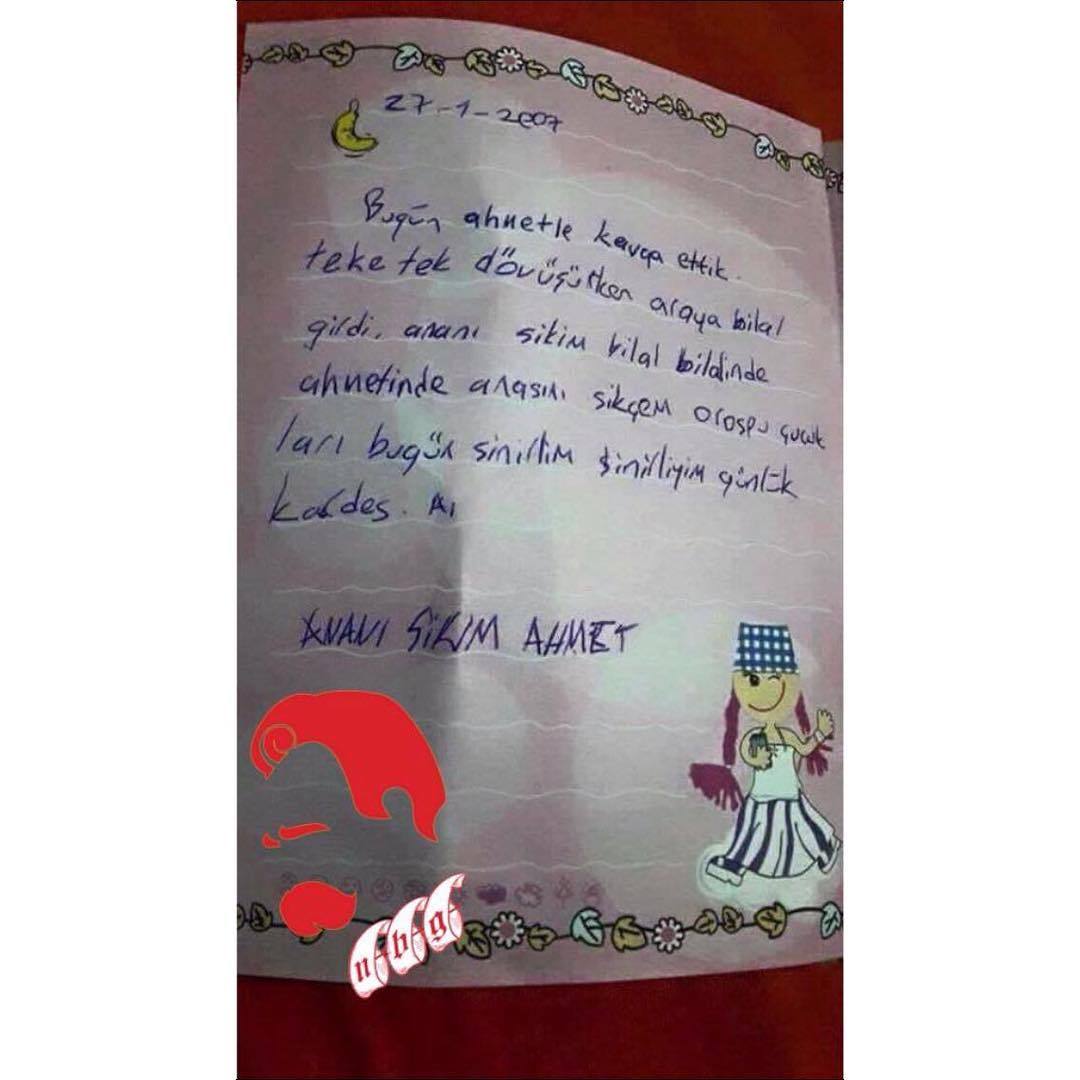 27-1-2007
Bugün ahmetle kavga ettik.
teke tek dövüşürken araya bilal
girdi. ananı sikim bilal bilalinde
ahmetinde anasını sikçem orospu çucuk
ları bugün sinirlim sinirliyim günlük
kardeş. Al
ANANI SİKİM AHMET
n-b-g